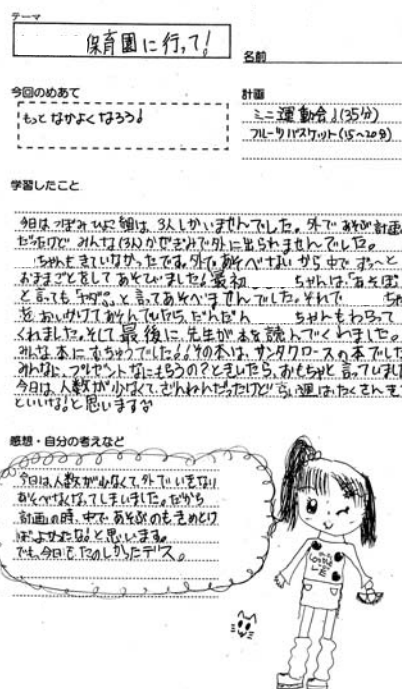 テーマ
保育園に行って!
名前
今回のめあて
もっと なかよく なろう!
計画
ミニ運動会!(35分)
フルーツバスケット(15~20分)
学習したこと
今日はつぼみひよこ組は、3人しかいませんでした。外であそぶ計画
だったけど みんな(3人)かぜぎみで外に出られませんでした。
ちゃんもきていなかったです。外であそべないから中でずっと
おままごとをしてあそびました!最初 ちゃんは「あそぼ」
と言っても「ヤダ」と言ってあそべませんでした。それで
をおいかけてあそんでいたら、だんだん ちゃんもわらって
くれました。そして最後に先生が本を読んでくれました。
みんな本にむちゅうでした!その本は、サンタクロースの本でした
みんなに、プレゼントなにもらうの?ときいたら、おもちゃと言っていました
今日は、人数が少なくて、ざんねんだったけど らい週はたくさん
といいな!と思います
感想・自分の考えなど
今日は人数が少なくて、外でいきなり
あそべなくなってしまいました。だから
計画の時、中であそぶのもきめとけ
ばよかったな。と思います。
でも、今日もたのしかったデス。